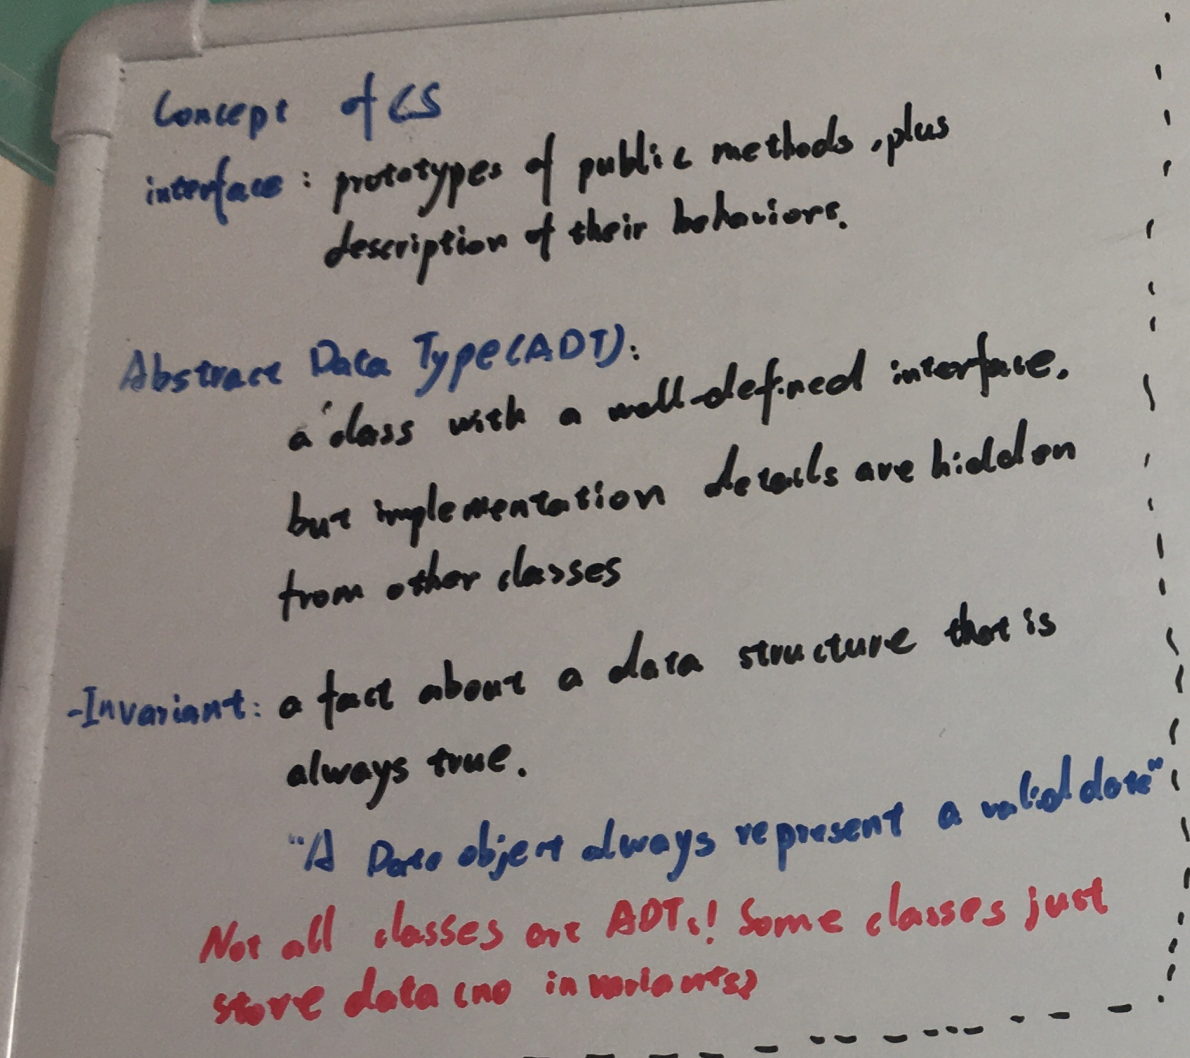 Concept of CS
interface : prototypes of public methods, plus
description of their behaviors.
Abstract Data Type (ADT):
a class with a well-defined interface,
but implementation details are hidden
from other classes
-Invariant: a fact about a data structure that is
always true.
"A Date object always represent a valid date"
Not all classes are ADTs! Some classes just
store data (no invariants)